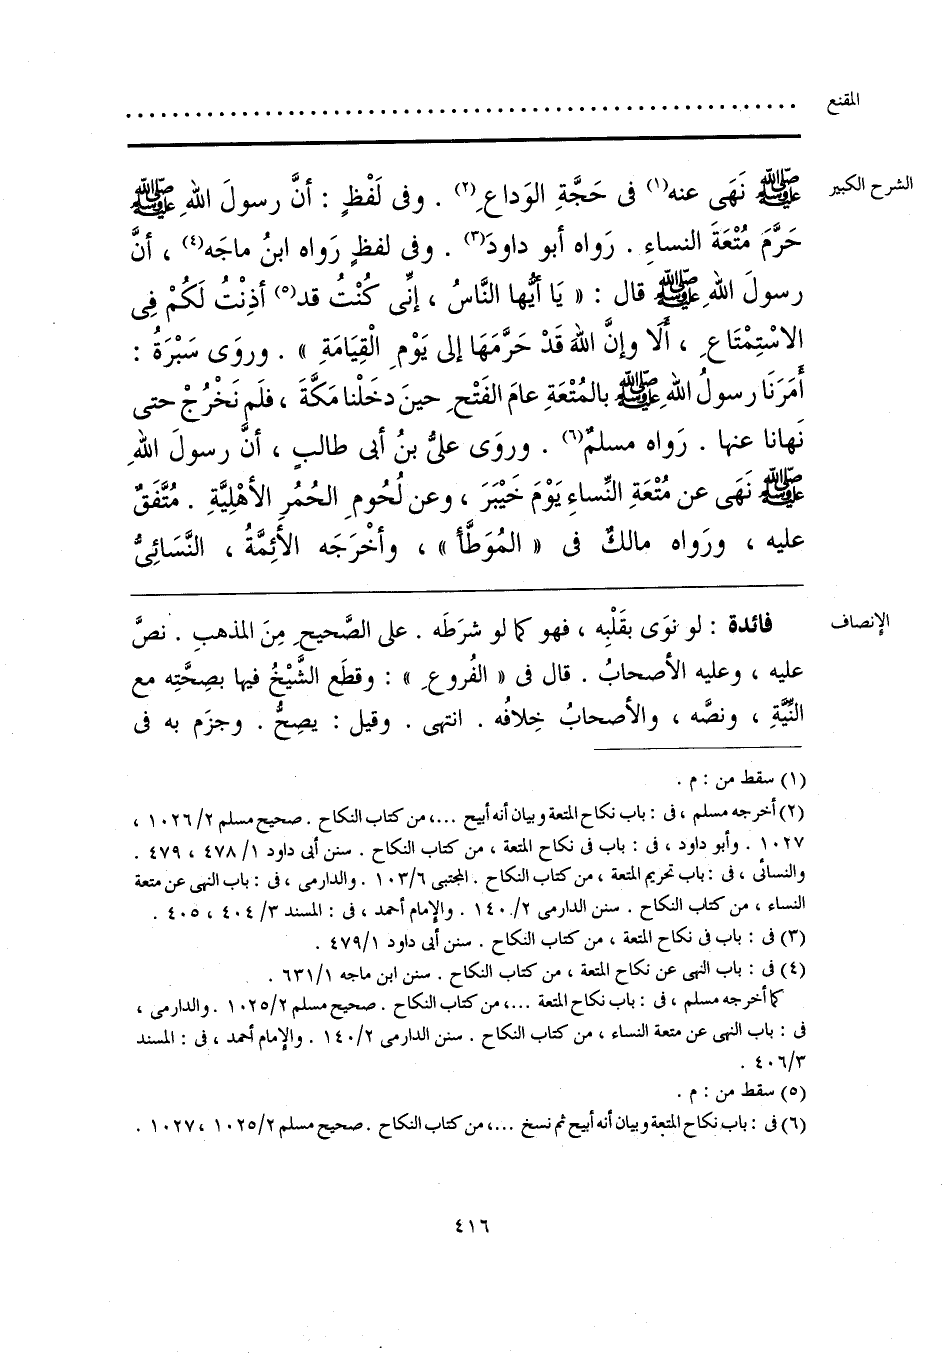 المقنع ........................................................
الشرح الكبير ﷺ نَهَى عنه(١) فى حَجَّةِ الوَداعِ(٢) . وفى لَفْظٍ : أنَّ رسولَ اللهِ ﷺ
حَرَّمَ مُتْعَةَ النساءِ . رَواه أبو داودَ(٣) . وفى لفظٍ رَواه ابنُ ماجَه(٤) ، أنَّ
رسولَ اللهِ ﷺ قال : « يَا أيُّها النَّاسُ ، إنِّى كُنْتُ قد(٥) أذِنْتُ لَكُمْ فِى
الاسْتِمْتَاعِ ، أَلَا وإنَّ اللهَ قَدْ حَرَّمَهَا إلى يَوْمِ الْقِيَامَةِ » . وروَى سَبْرَةُ :
أمَرَنَا رسولُ اللهِ ﷺ بالمُتْعَةِ عامَ الفَتْحِ حينَ دخَلْنا مكَّةَ ، فلَم نَخْرُجْ حتى
نَهانا عنها . رَواه مسلمٌ(٦) . وروَى علىُّ بنُ أبى طالبٍ ، أنَّ رسولَ اللهِ
ﷺ نَهَى عن مُتْعَةِ النِّساءِ يَوْمَ خَيْبَرَ ، وعن لُحُومِ الحُمُرِ الأهْلِيَّةِ . مُتَّفَقٌ
عليه ، ورَواه مالكٌ فى « المُوَطَّأ » ، وأخْرَجَه الأئِمَّةُ ، النَّسَائِىُّ
الإنصاف فائدة : لو نوَى بقَلْبِه ، فهو كما لو شرَطَه . على الصَّحيحِ مِنَ المذهبِ . نصَّ
عليه ، وعليه الأصحابُ . قال فى « الفُروعِ » : وقطَع الشَّيْخُ فيها بصِحَّتِه مع
النِّيَّةِ ، ونصُّه ، والأصحابُ خِلافُه . انتهى . وقيل : يصِحُّ . وجزَم به فى
(١) سقط من : م .
(٢) أخرجه مسلم ، فى : باب نكاح المتعة وبيان أنه أبيح ...، من كتاب النكاح . صحيح مسلم ٢/ ١٠٢٦ ،
١٠٢٧ . وأبو داود ، فى : باب فى نكاح المتعة ، من كتاب النكاح . سنن أبى داود ١/ ٤٧٨ ، ٤٧٩ .
والنسائى ، فى : باب تحريم المتعة ، من كتاب النكاح . المجتبى ٦/ ١٠٣ . والدارمى ، فى : باب النهى عن متعة
النساء ، من كتاب النكاح . سنن الدارمى ٢/ ١٤٠ . والإمام أحمد ، فى : المسند ٣/ ٤٠٤ ، ٤٠٥ .
(٣) فى : باب فى نكاح المتعة ، من كتاب النكاح . سنن أبى داود ١/ ٤٧٩ .
(٤) فى : باب النهى عن نكاح المتعة ، من كتاب النكاح . سنن ابن ماجه ١/ ٦٣١ .
كما أخرجه مسلم ، فى : باب نكاح المتعة ...، من كتاب النكاح . صحيح مسلم ٢/ ١٠٢٥ . والدارمى ،
فى : باب النهى عن متعة النساء ، من كتاب النكاح . سنن الدارمى ٢/ ١٤٠ . والإمام أحمد ، فى : المسند
٣/ ٤٠٦ .
(٥) سقط من : م .
(٦) فى : باب نكاح المتعة وبيان أنه أبيح ثم نسخ ...، من كتاب النكاح . صحيح مسلم ٢/ ١٠٢٥ ، ١٠٢٧ .
٤١٦